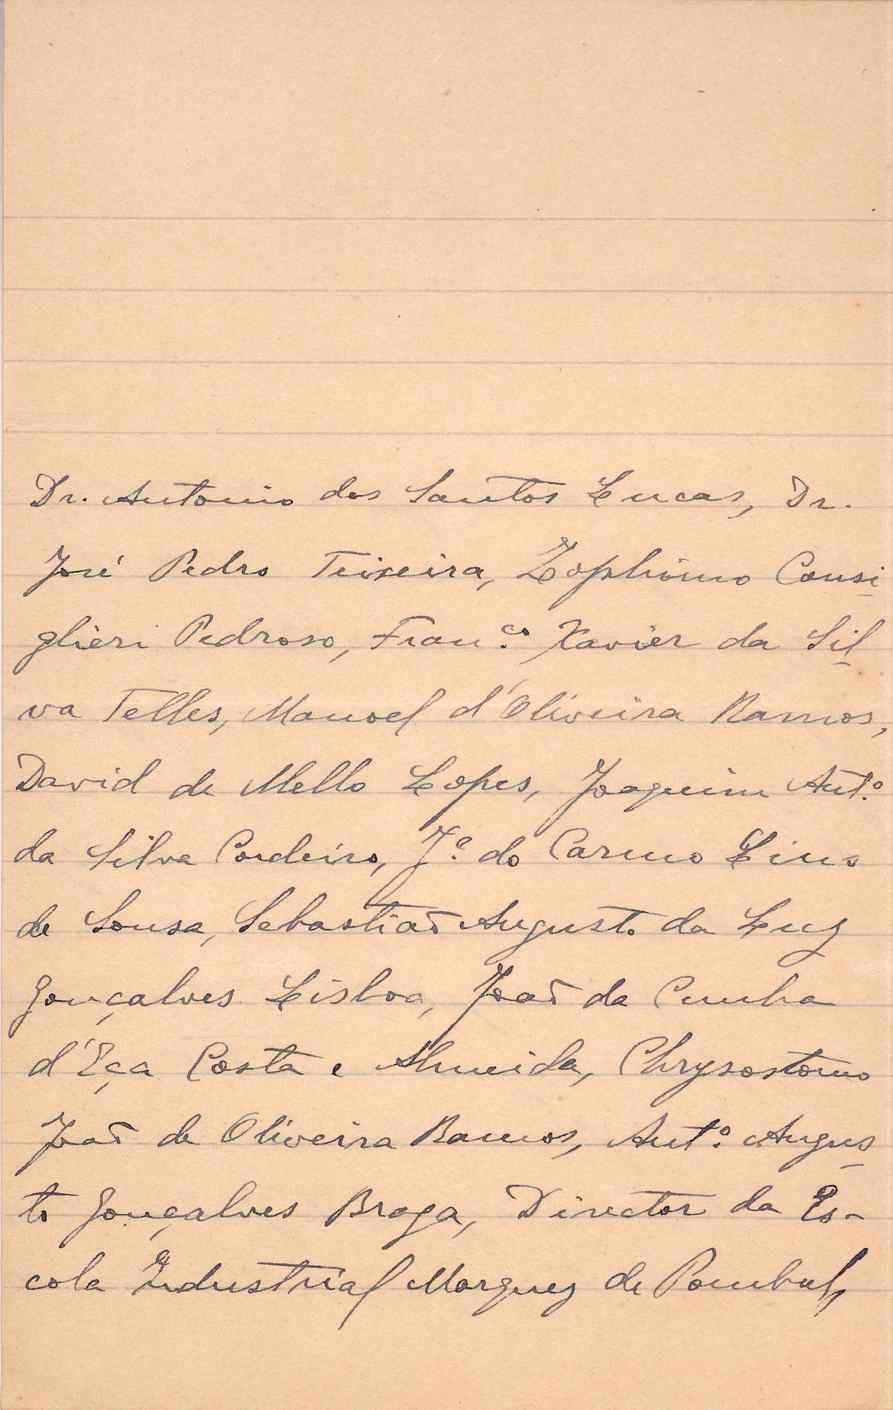 Dr. Antonio dos Santos Lucas, Dr.
José Pedro Teixeira, Zophimo Consi-
glieri Pedroso, Fran.co Xavier da Sil-
va Telles, Manoel d'Oliveira Ramos,
David de Mello Lopes, Joaquim Ant.o
da Silva Cordeiro, J.e do Carmo Lino
de Sousa, Sebastião Augusto da Luz
Gonçalves Lisboa, João da Cunha
d'Eça Costa e Almeida, Chrysostomo
João de Oliveira Ramos, Ant.o Augus-
to Gonçalves Braga, Director da Es-
cola Industrial Marquez de Pombal,